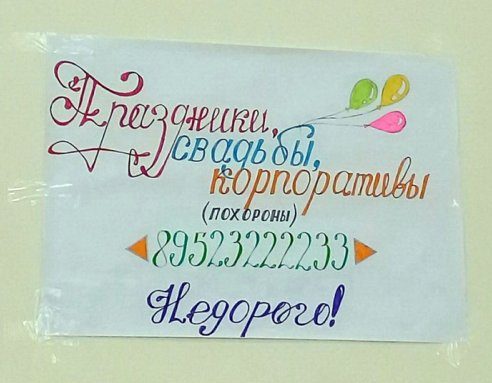 Праздники,
свадьбы,
корпоративы
(похороны)
89523222233
Недорого!